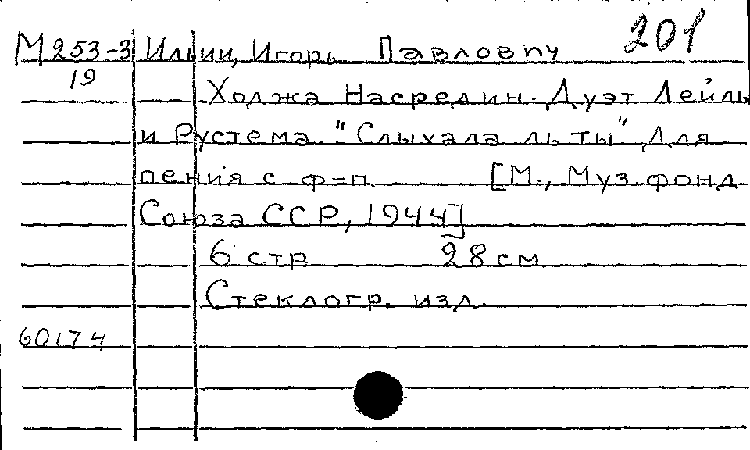 201
М253-3 Ильин, Игорь Павлович
19
Ходжа Насредин. Дуэт Лейлы
и Рустема "Слыхала ль ты" Для
пения с ф=п [М., Муз. фонд
Союза ССР, 1944]
6 стр 28 см
Стеклогр. изд.
60174